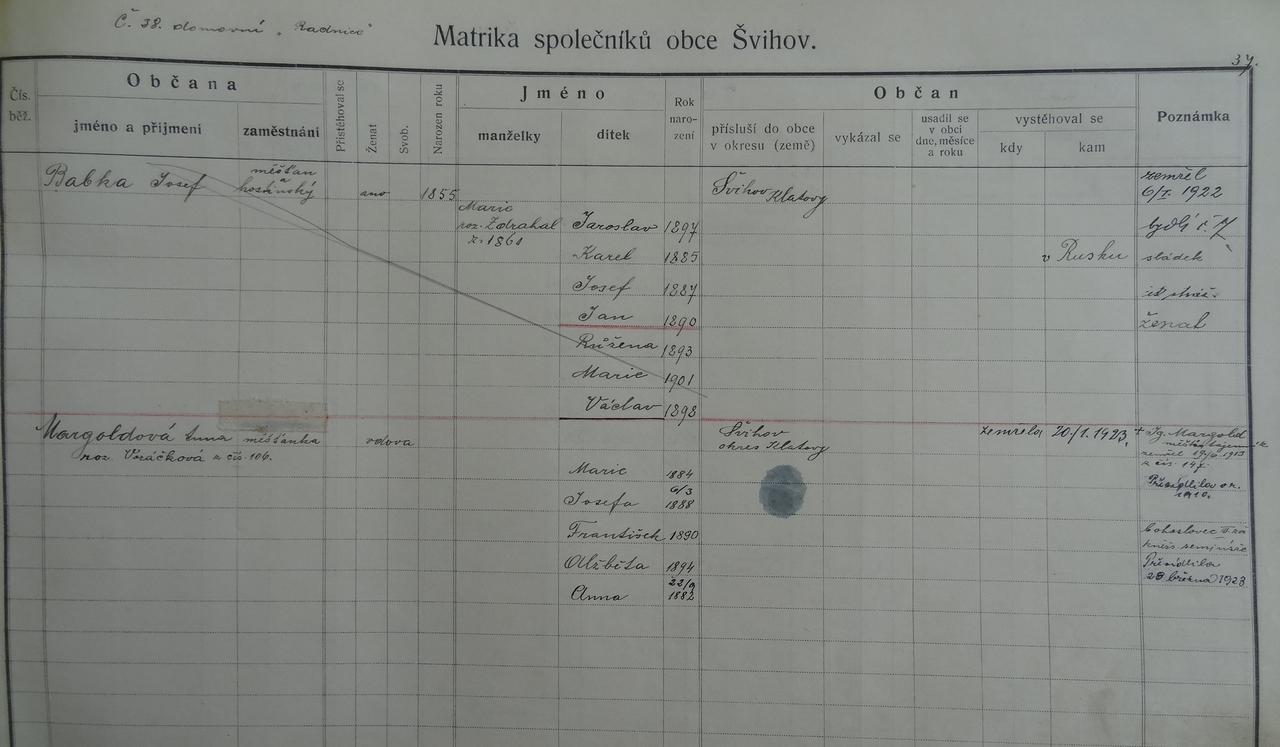 Č. 38. domovní „Radnice“
Matrika společníků obce Švihov.
37.
Čís. běž.
Občana
jméno a příjmení
zaměstnání
Přistěhoval se
Ženat
Svob.
Narozen roku
Jméno
manželky
dítek
Rok naro- zení
Občan
přísluší do obce v okresu (země)
vykázal se
usadil se v obci dne, měsíce a roku
vystěhoval se
kdy
kam
Poznámka
Babka Josef měšťan a hostinský ano 1855 Švihov Klatovy zemřel 6/I. 1922
Marie roz. Zdrahal r. 1861 Jaroslav 1897 bydlí č. 7
Karel 1885 v Rusku sládek
Josef 1887
Jan 1890 ženat
Růžena 1893
Marie 1901
Václav 1898
Margoldová Anna měšťanka vdova Švihov okres Klatovy zemřela 20/1. 1923. + Ig. Margold
roz. Voráčková z čís. 106. zemřel 19/6 1913 z čís. 147.
Marie 1884 Přesídlila
1910.
Josefa 6/3 1888
František 1890 bohoslovec
kněž. semináře
Alžběta 1894 Přesídlila
28 března 1923
Anna 22/9 1882